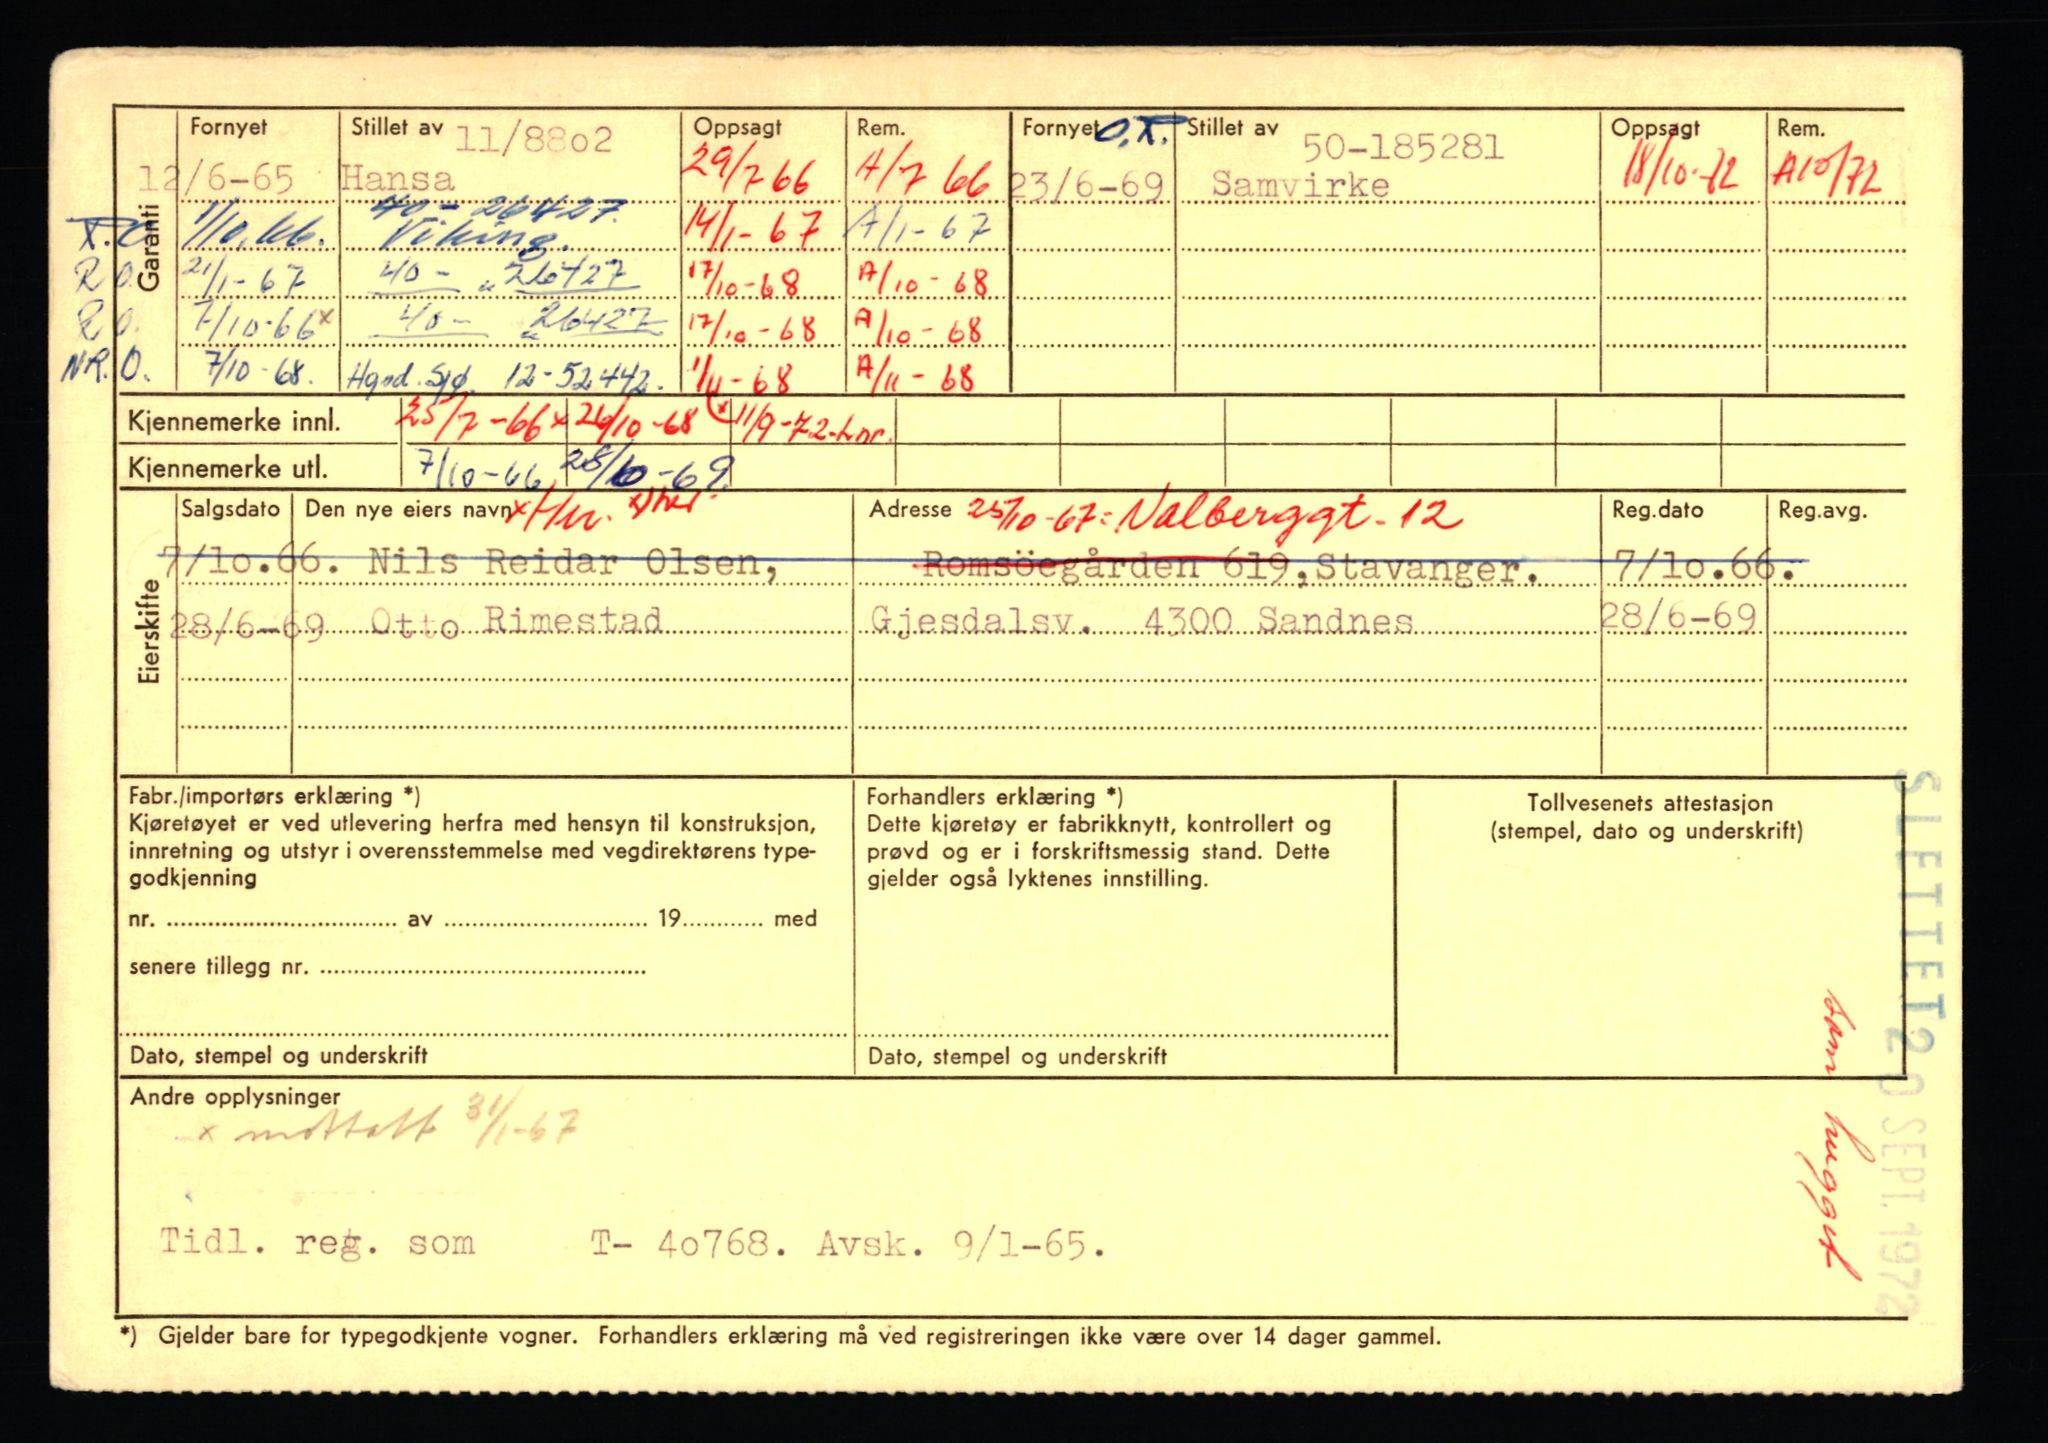 Garanti
Fornyet Stillet av 11/88o2 Oppsagt Rem. Fornyet O.R. Stillet av 50-185281 Oppsagt Rem.
12/6-65 Hansa 29/7 66 A/7 66 23/6-69 Samvirke 18/10-72 A10/72
40-26427.
1/10.66. Viking. 14/1-67 A/1-67
R O. 21/1-67 40- „ 26427 17/10-68 A/10-68
R O. 7/10-66x 40- „ 26427 17/10-68 A/10-68
NR. O. 7/10-68. Hgsd. Sjø. 12-52442. 1/11-68 A/11-68
Kjennemerke innl. 25/7-66 x 26/10-68 (x 11/9-72-hnr.
Kjennemerke utl. 7/10-66 28/6-69.
Eierskifte
Salgsdato Den nye eiers navn Adresse 25/10-67: Valberggt-12 Reg.dato Reg.avg.
7/1o.66. Nils Reidar Olsen, Romsöegården 619,Stavanger. 7/1o.66.
28/6-69 Otto Rimestad Gjesdalsv. 4300 Sandnes 28/6-69
Fabr./importørs erklæring *)
Kjøretøyet er ved utlevering herfra med hensyn til konstruksjon,
innretning og utstyr i overensstemmelse med vegdirektørens type-
godkjenning
nr. av 19 med
senere tillegg nr.
Dato, stempel og underskrift
Forhandlers erklæring *)
Dette kjøretøy er fabrikknytt, kontrollert og
prøvd og er i forskriftsmessig stand. Dette
gjelder også lyktenes innstilling.
Dato, stempel og underskrift
Tollvesenets attestasjon
(stempel, dato og underskrift)
SLETTET 20 SEPT. 1972
som hugget
Andre opplysninger
x mottatt 31/1-67
Tidl. reg. som T- 4o768. Avsk. 9/1-65.
*) Gjelder bare for typegodkjente vogner. Forhandlers erklæring må ved registreringen ikke være over 14 dager gammel.